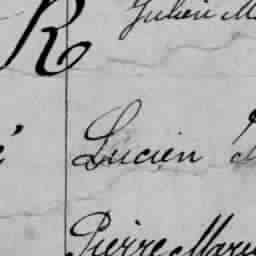 R
Julien
Lucien
Pierre Marie